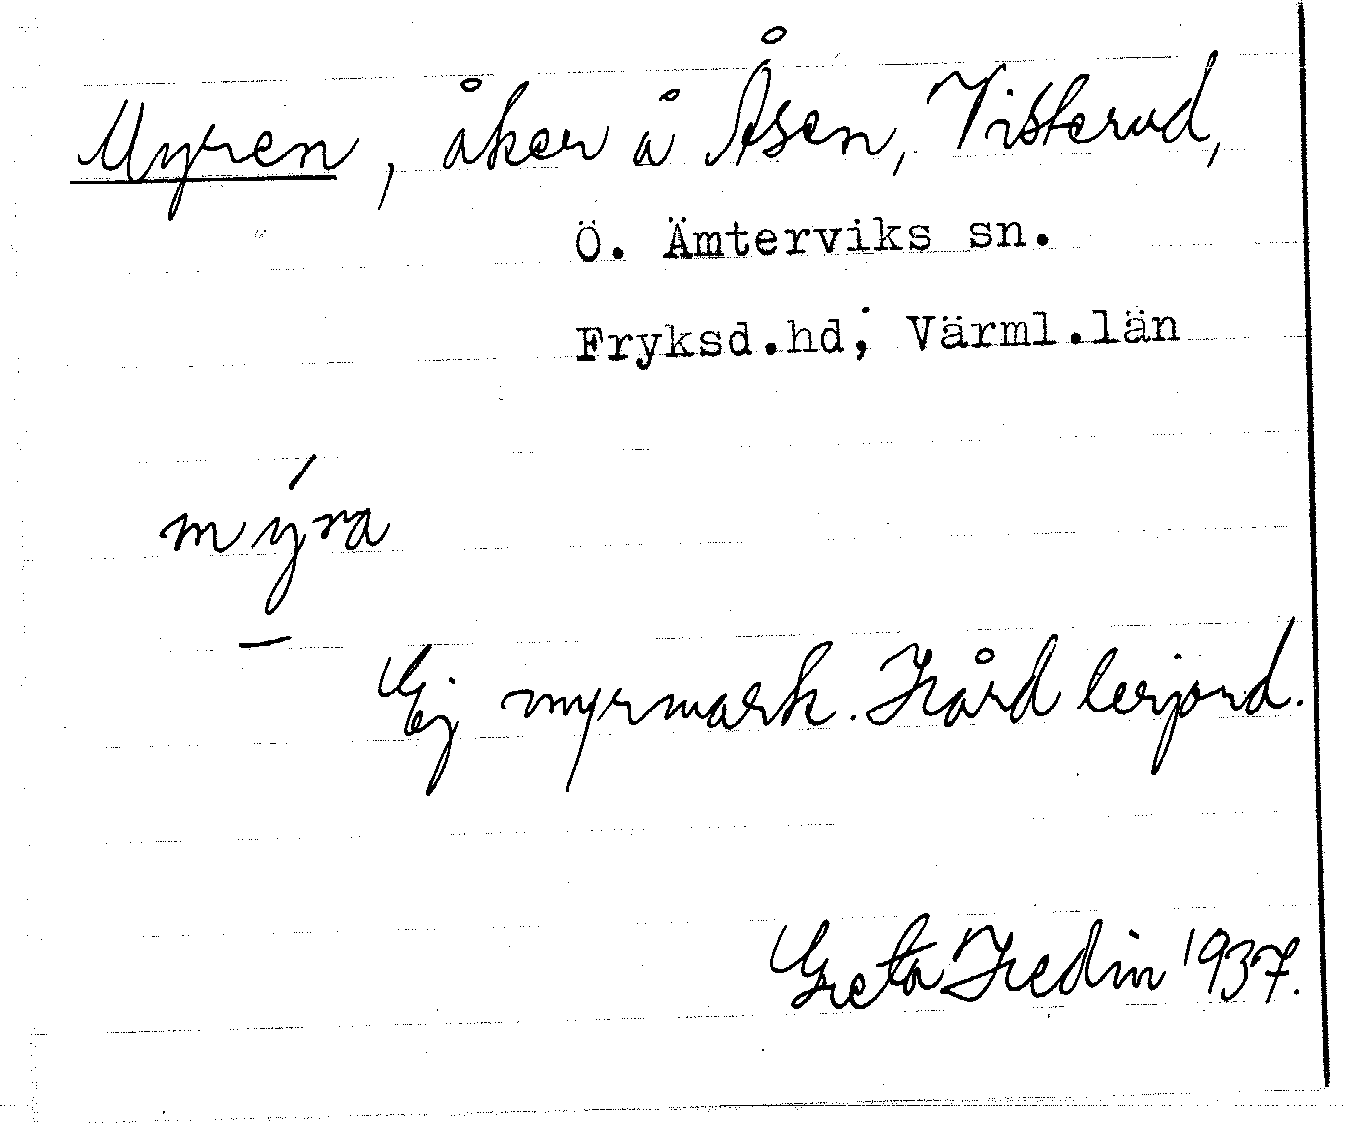 Myren, åker å Åsen, Visterud,
Ö. Ämterviks sn.
Fryksd.hd; Värml.län
mýra
Ej myrmark. Hård lerjord.
Greta Hedin 1937.